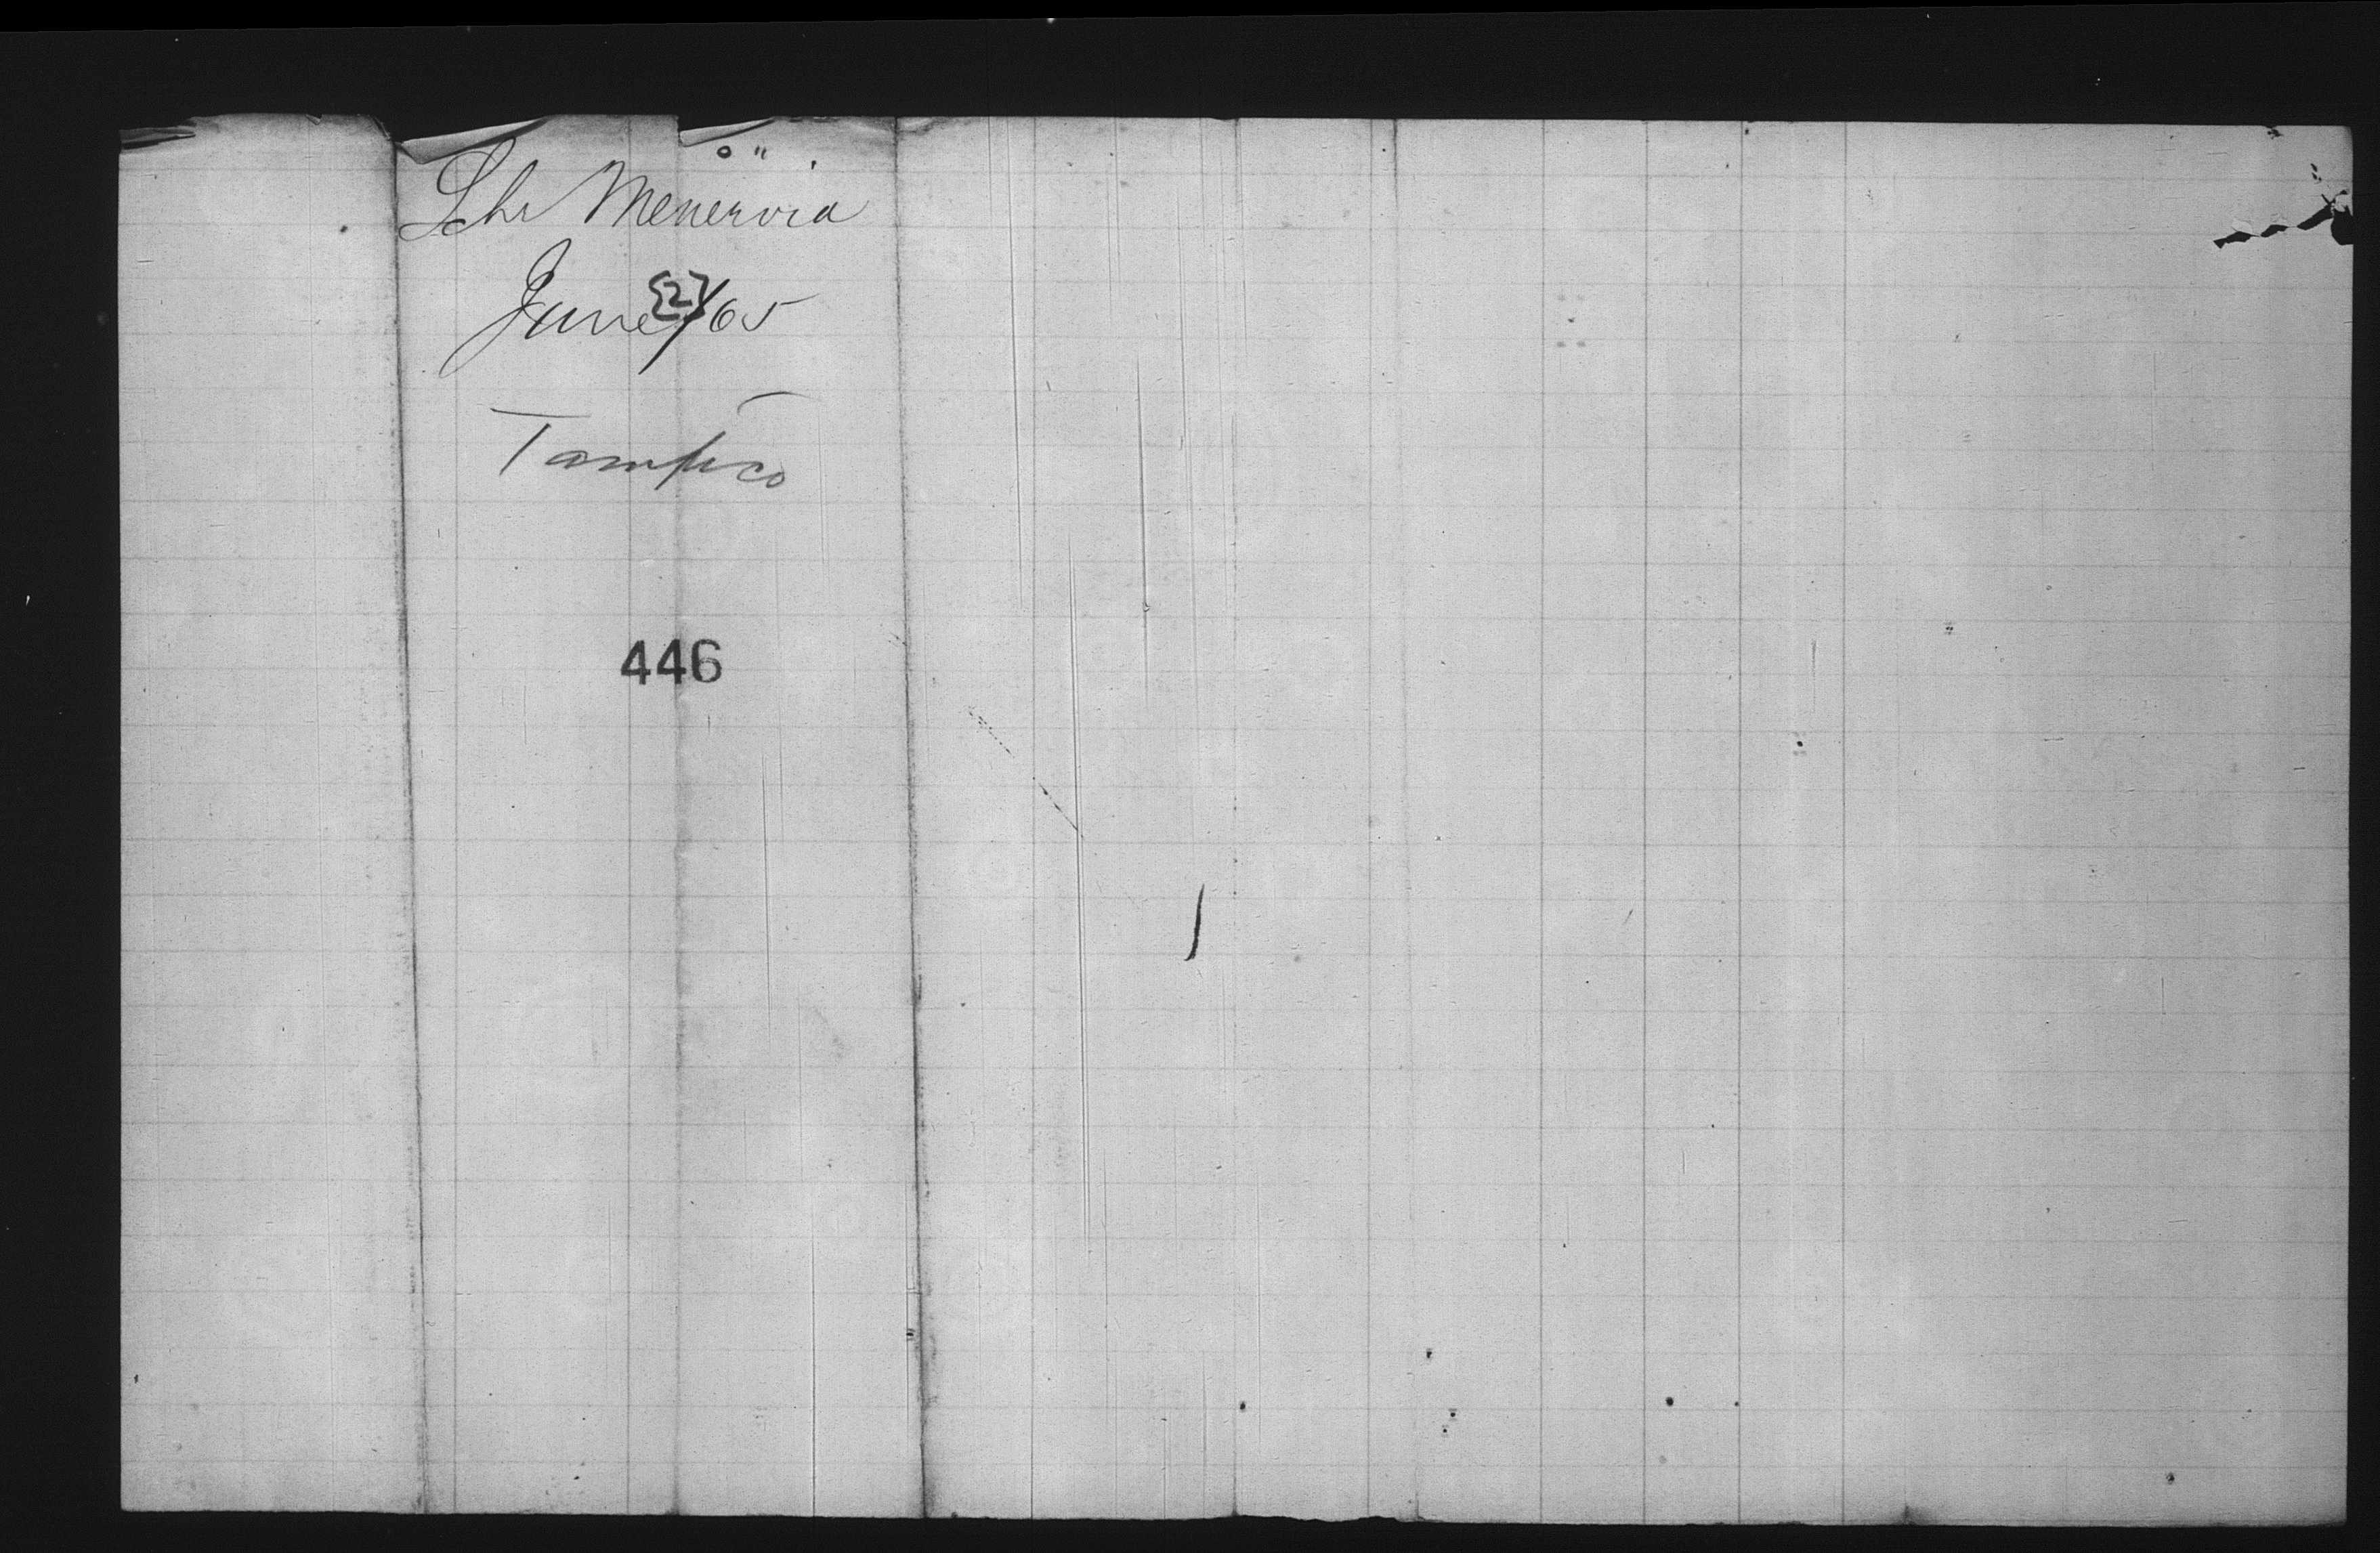 Schr Menervia
June {2}/65
Tampico
446